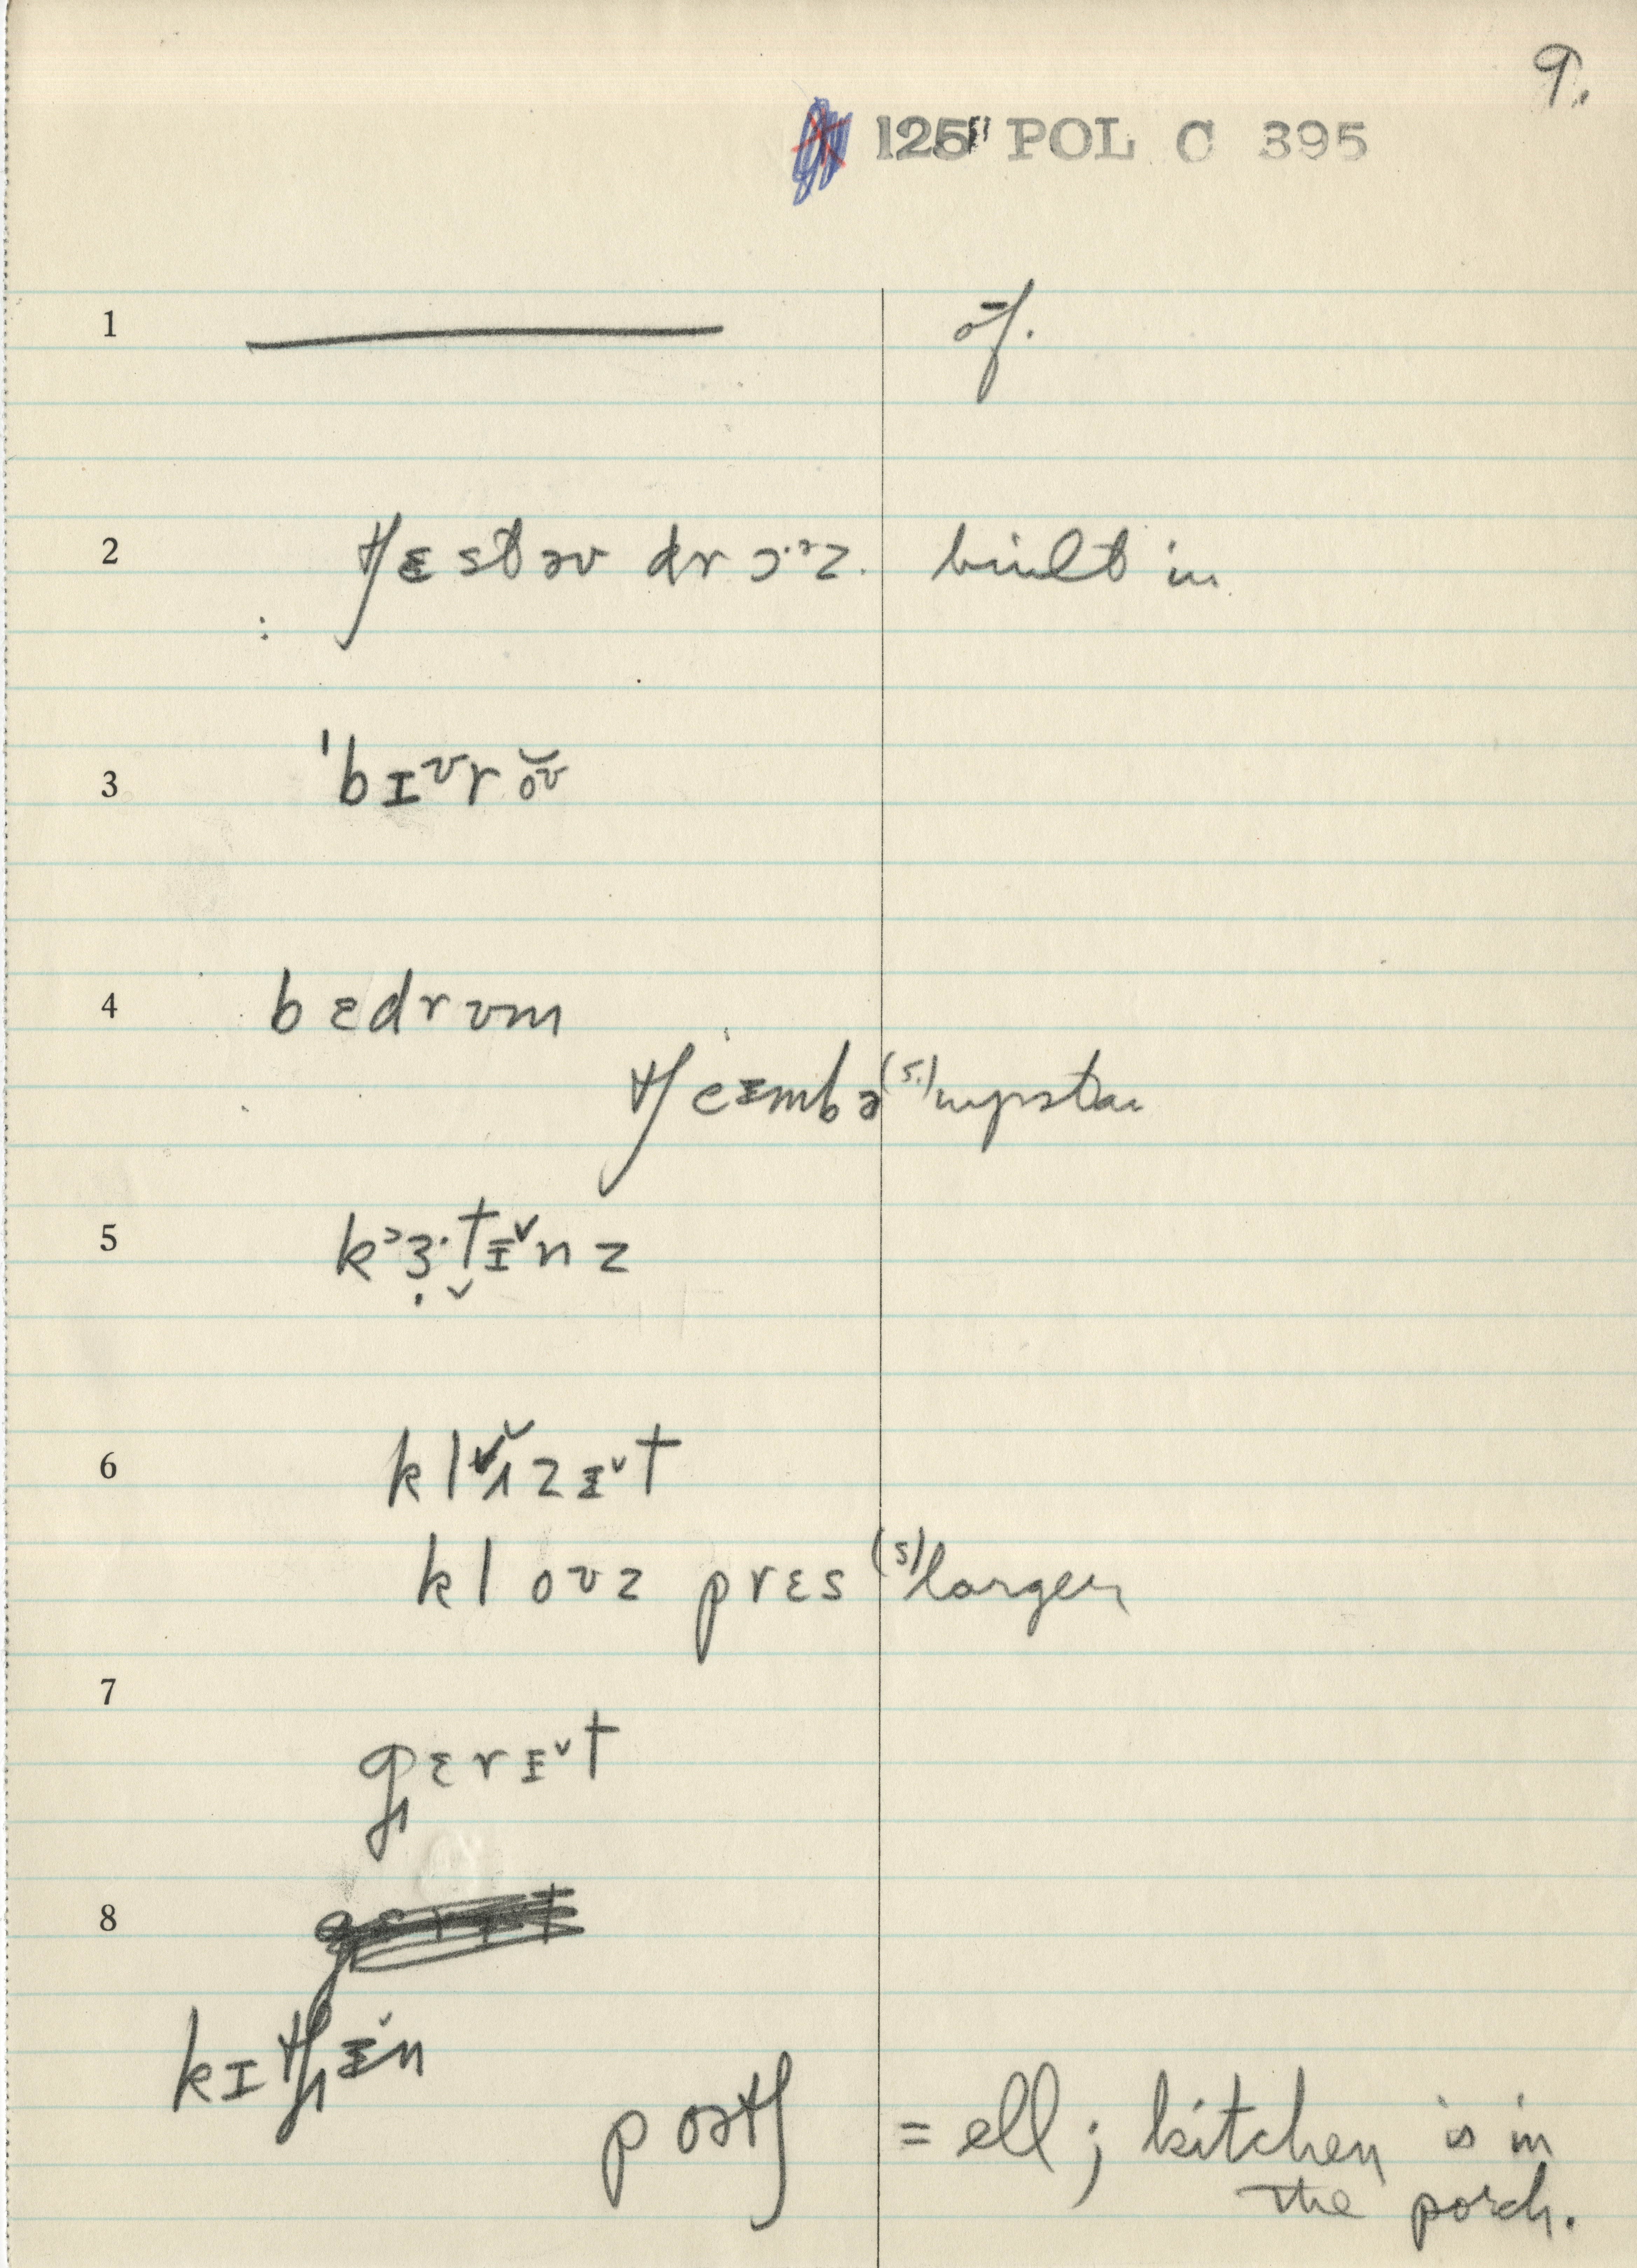 9.
125" POL C 395
1 ōf.
2 tʃɛstəv drɔ·ᵊz. built in
3 ˈbɪᶷr ŏʊ
4 bɛdrʊm
tʃeɪmbə (s.) upstairs
5 kᵊɜ·tɪ̵˅nz
6 zɪ̵˅t
kloʊz prɛs (s) larger
7
gɛrɪ̵˅t
8
kɪtʃɪ̵˅n
poətʃ = ell; kitchen is in
the porch.